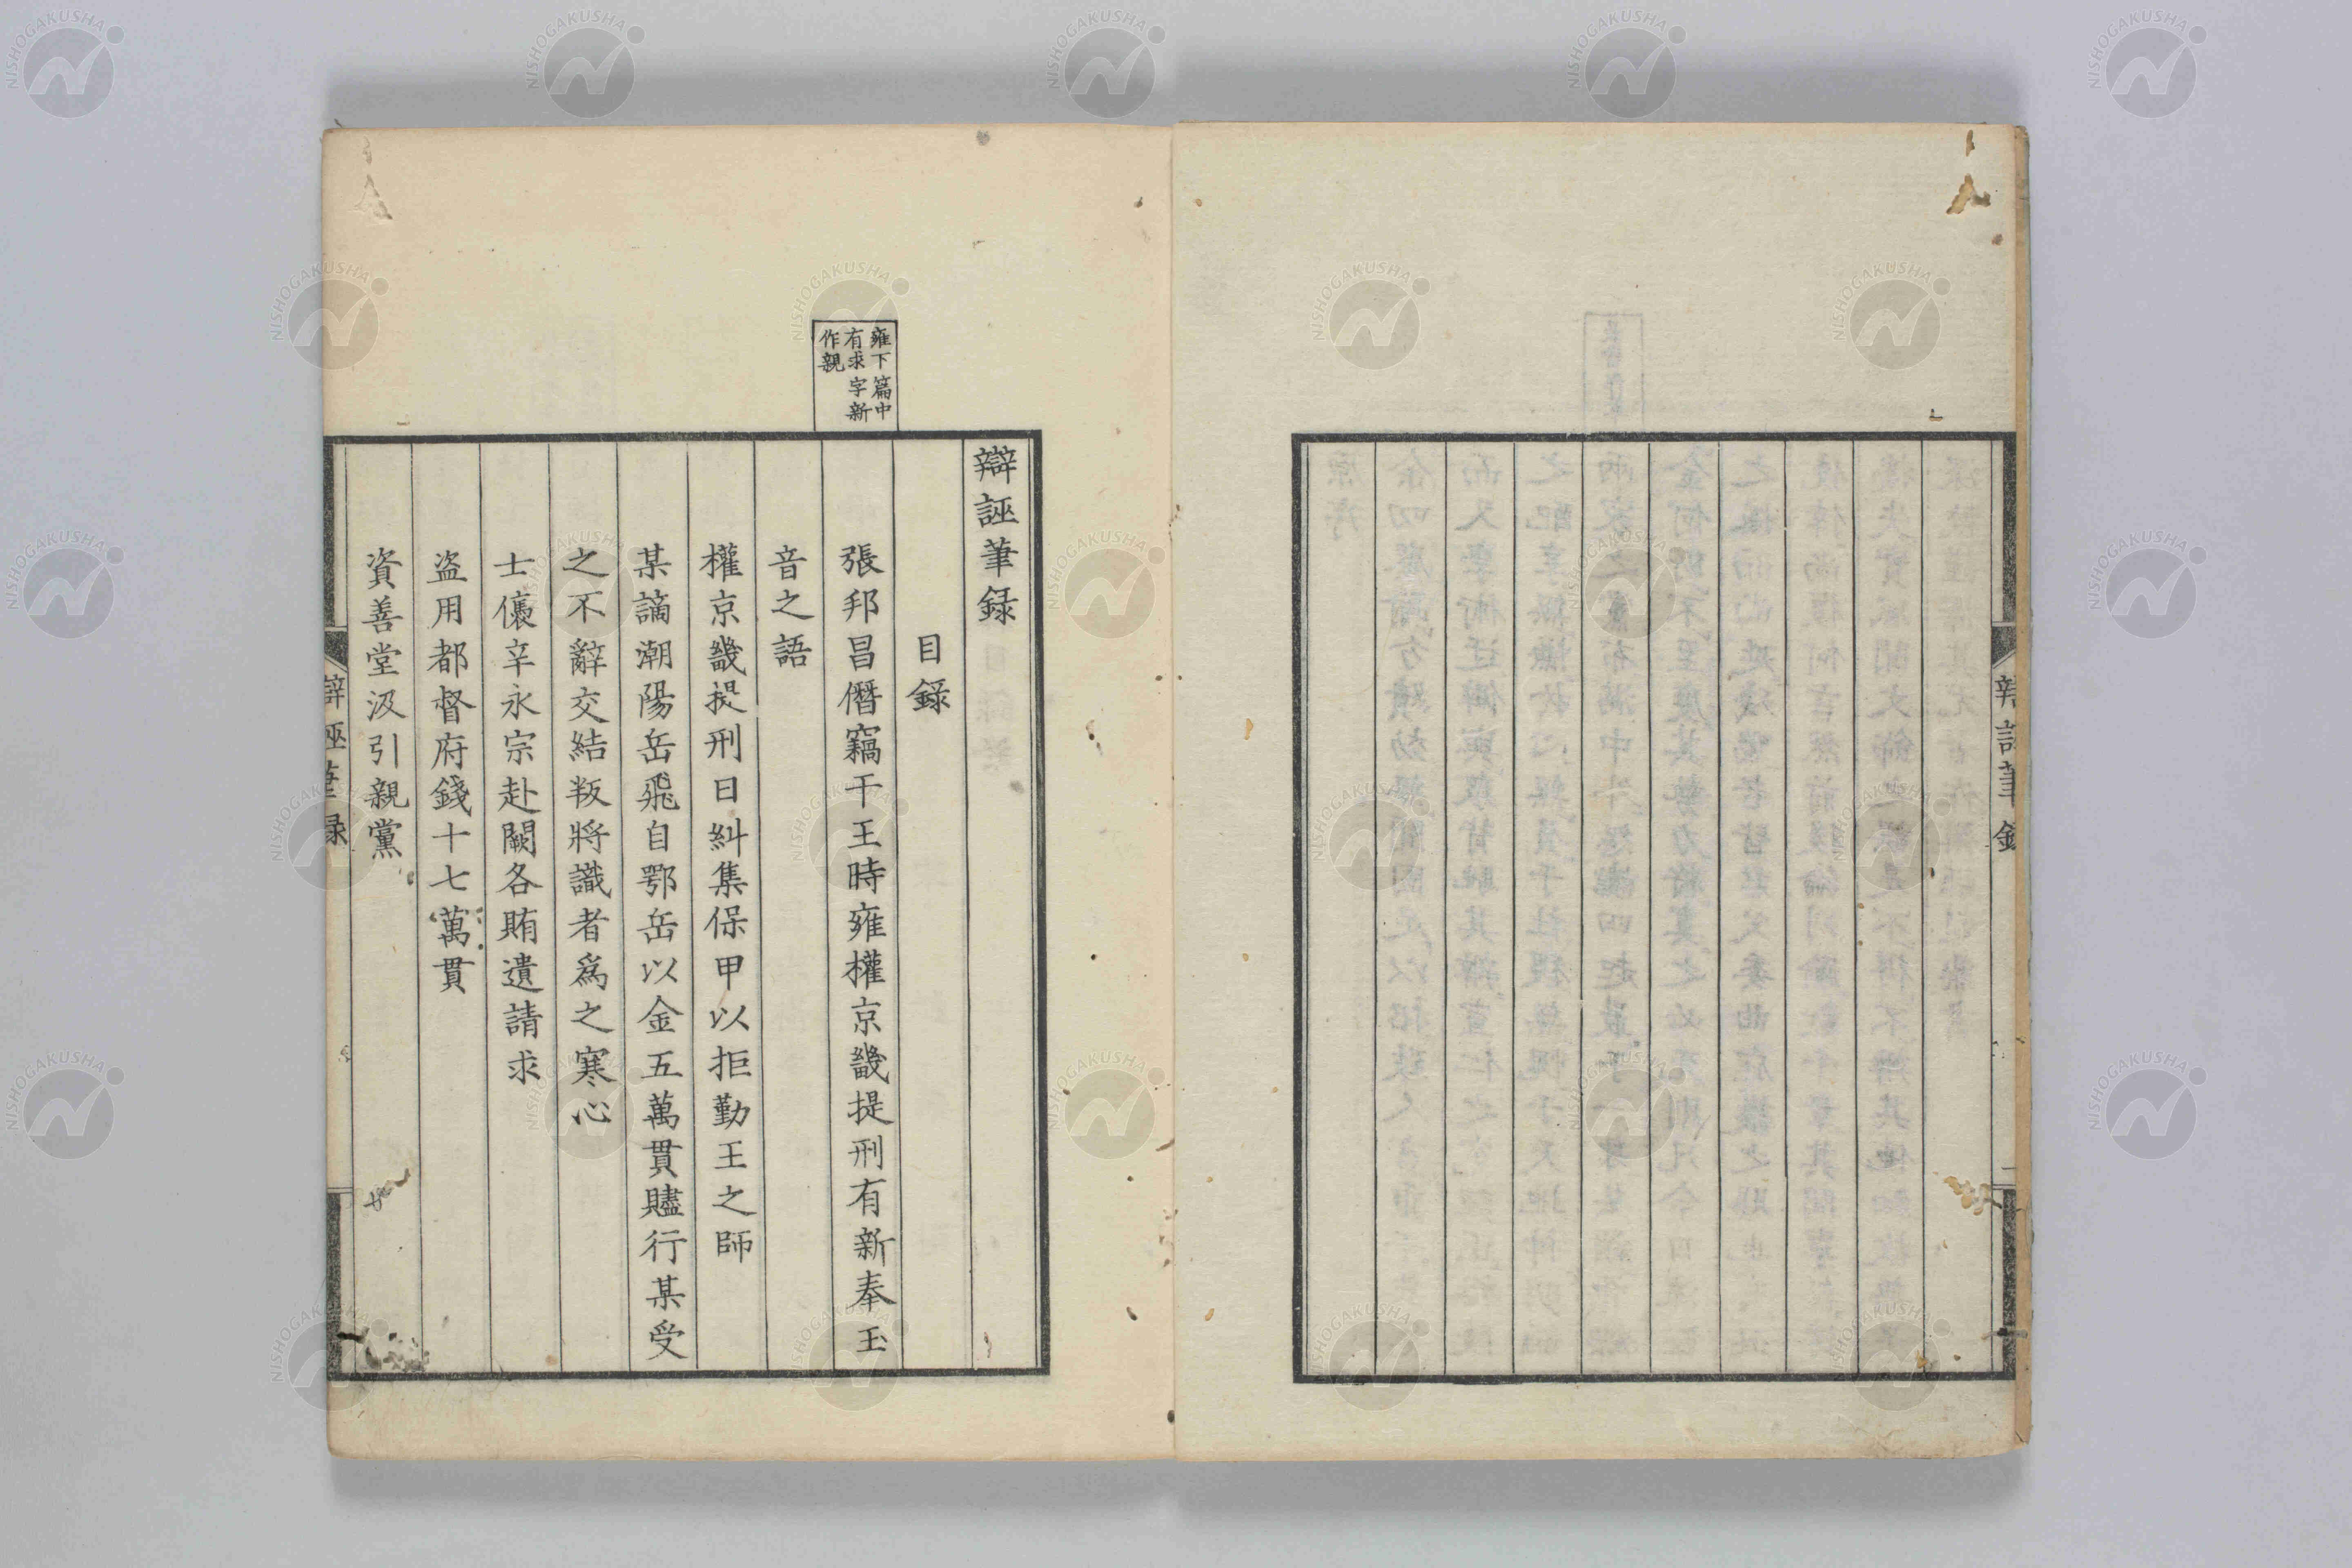 辨誣筆
二
雍下篇中
有求字新
作親
辯誣筆録
目録
張邦昌僭竊干王時雍權京畿提刑有新奉玉
音之語
權京畿提刑日糾集保甲以拒勤王之師
某謫潮陽岳飛自鄂岳以金五萬貫贐行某受
之不辭交結叛將識者爲之寒心
士儇辛永宗赴闕各賄遺請求
盗用都督府錢十七萬貫
資善堂汲引親黨
辯誣筆録
NISHOGAKUSHA